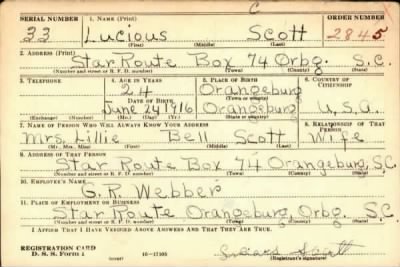 C
SERIAL NUMBER 1. NAME (Print) ORDER NUMBER
33 Lucious Scott 2845
(First) (Middle) (Last)
2. ADDRESS (Print)
Star Route Box 74 Orbg. S.C.
(Number and street or R. F. D. number) (Town) (County) (State)
3. TELEPHONE 4. AGE IN YEARS 5. PLACE OF BIRTH 6. COUNTRY OF CITIZENSHIP
24 Orangeburg
DATE OF BIRTH (Town or county)
June 24 1916 Orangeburg U.S.A.
(Exchange) (Number) (Mo.) (Day) (Yr.) (State or country)
7. NAME OF PERSON WHO WILL ALWAYS KNOW YOUR ADDRESS 8. RELATIONSHIP OF THAT PERSON
Mrs. Lillie Bell Scott Wife
(Mr., Mrs., Miss) (First) (Middle) (Last)
9. ADDRESS OF THAT PERSON
Star Route Box 74 Orangeburg, S.C.
(Number and street or R. F. D. number) (Town) (County) (State)
10. EMPLOYER'S NAME
G. R. Webber
11. PLACE OF EMPLOYMENT OR BUSINESS
Star Route Orangeburg, Orbg. S.C.
(Number and street or R. F. D. number) (Town) (County) (State)
I AFFIRM THAT I HAVE VERIFIED ABOVE ANSWERS AND THAT THEY ARE TRUE.
REGISTRATION CARD
D. S. S. Form 1 (over) 16—17105 Scott
(Registrant's signature)